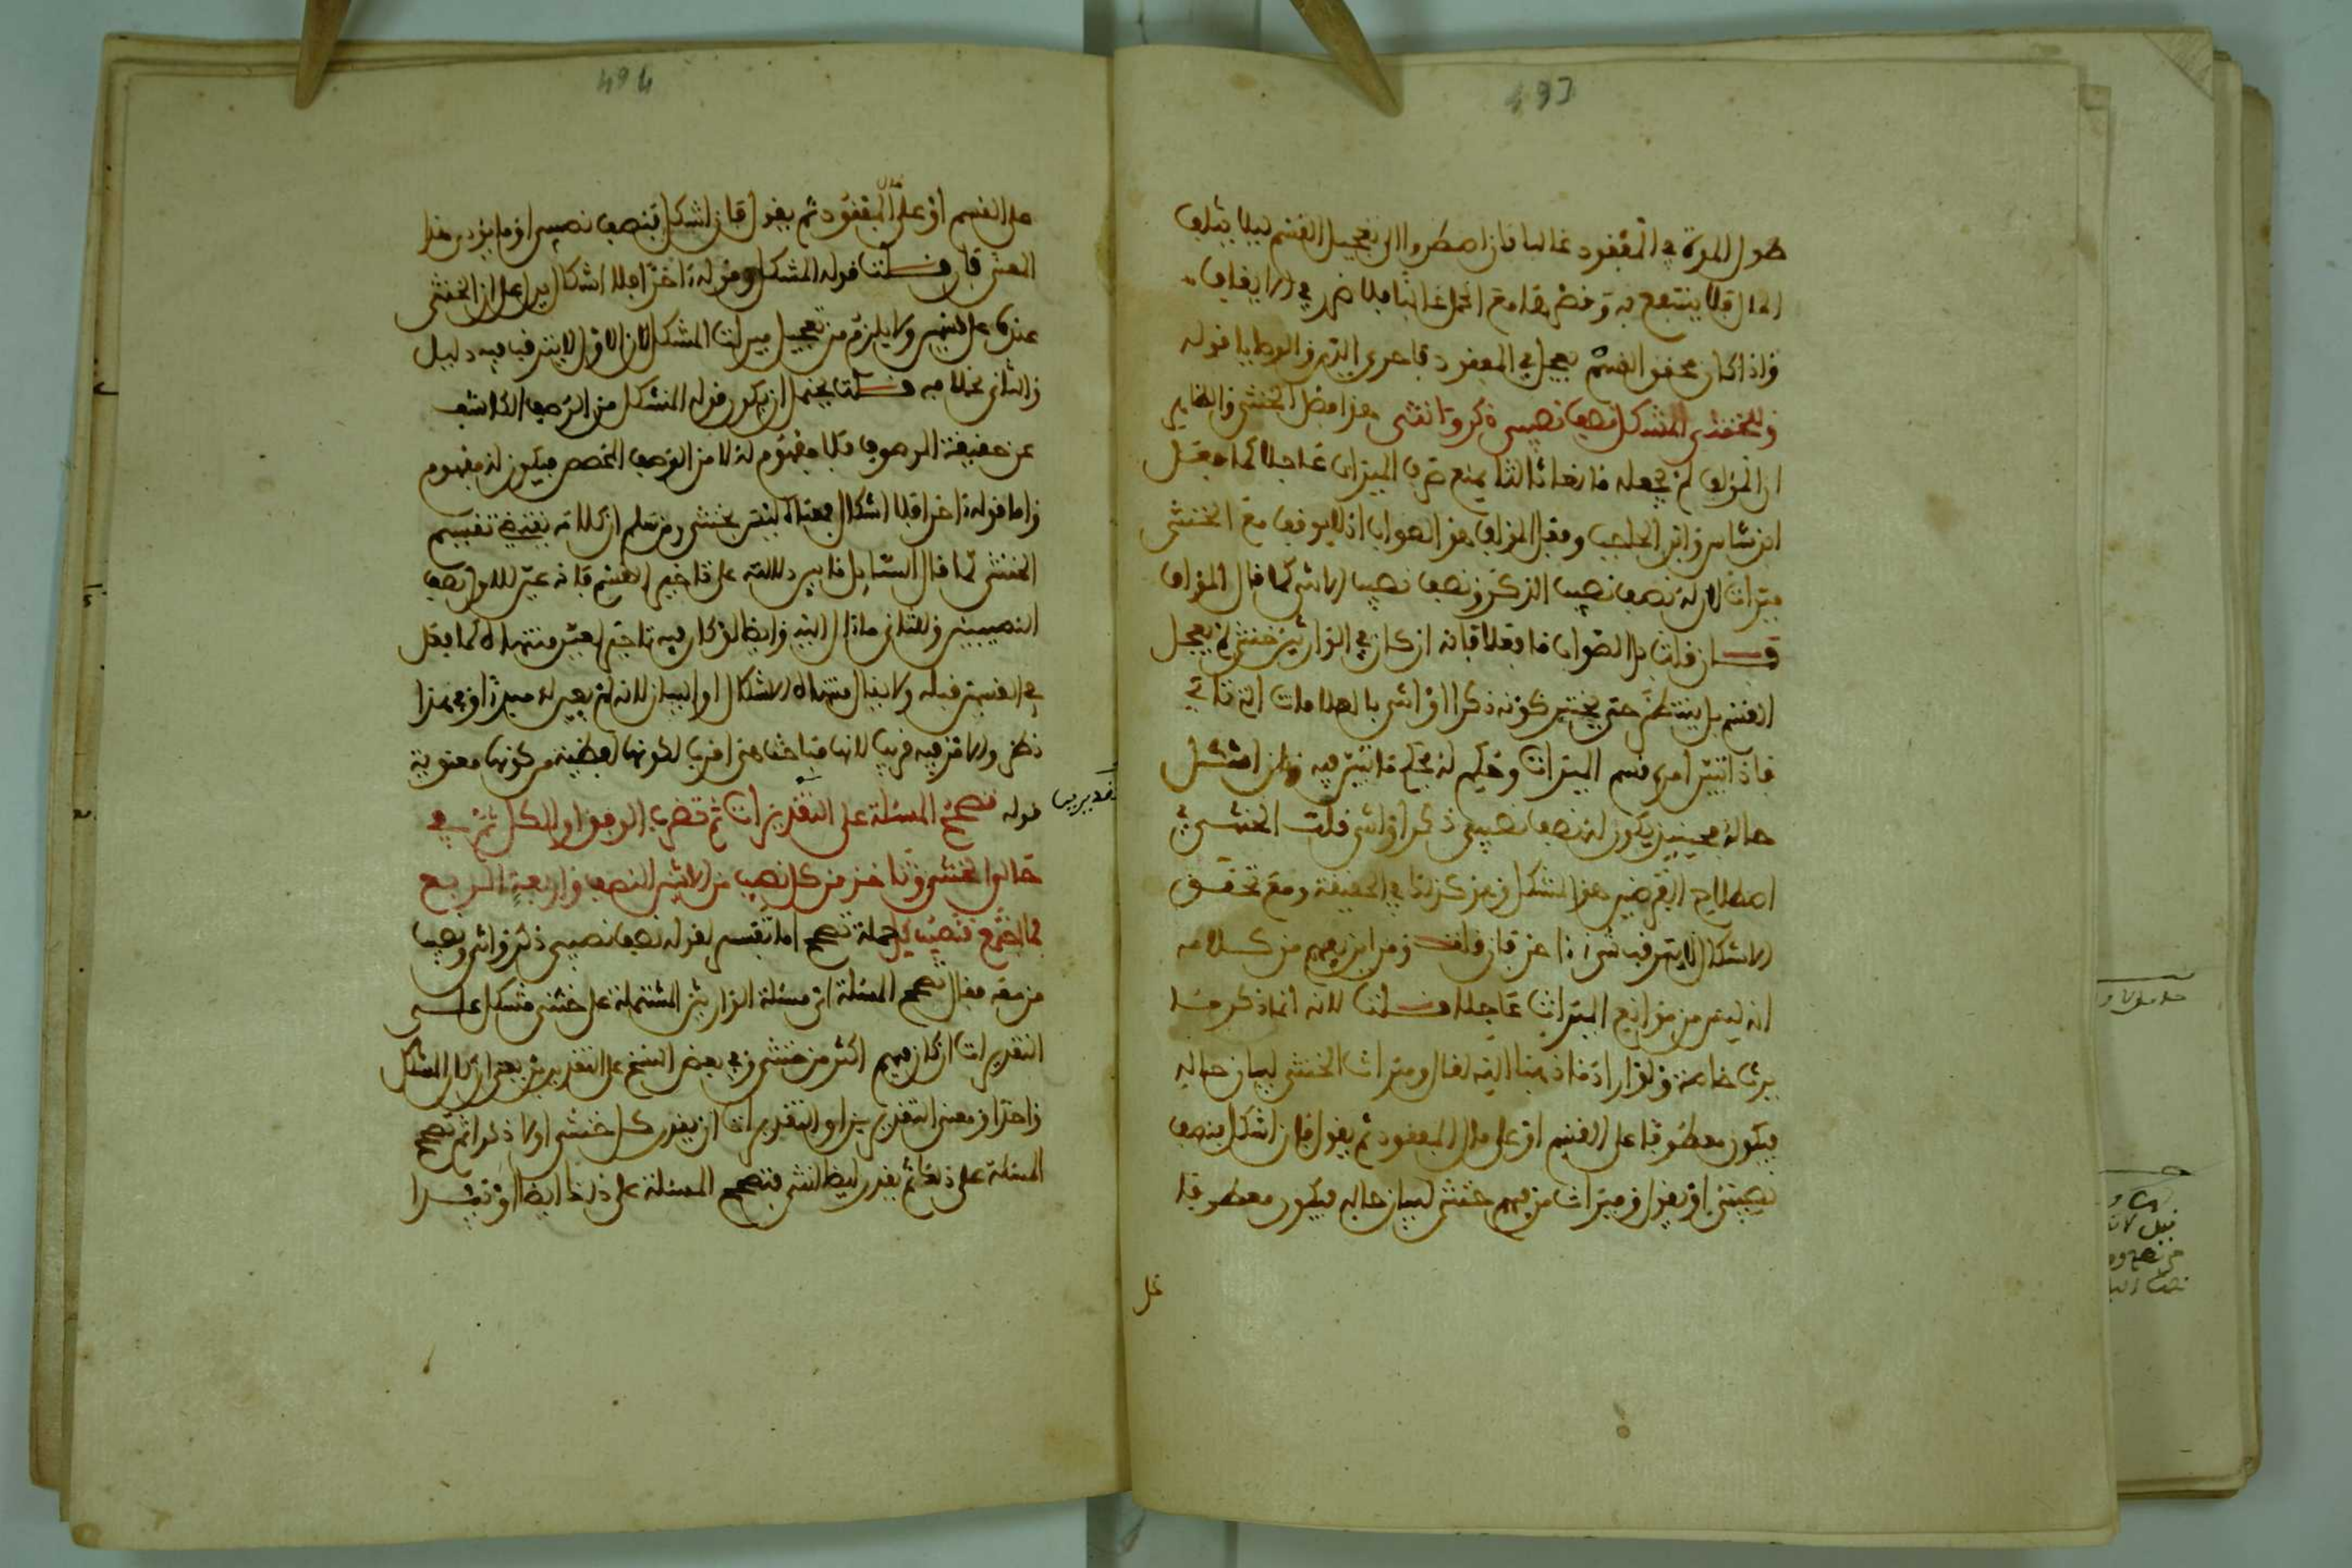 493
طول المدة في المفقود غالبا فان اضطروا الى تعجيل القسم ليلا يتلف
المال فلا ينتفع به وخص بقا مع الحمل غالبا فلا ضرر في الايقاف
واذا كان محقق القسم يعجل في المفقود فاحرى الدين والوصايا قوله
وللخنثى المشكل نصف نصيبي ذكر وانثى هذا فصل الخنثى والظاهر
ان المؤلف لم يجعله مانعا ثالثا يمنع صرف الميراث عاجلا كما فعل
ابن شاس وابن الحاجب وفعل المؤلف هو الصواب اذ لا يوقف مع الخنثى
ميراث لان له نصف نصيب الذكر ونصف نصيب الانثى كما قال المؤلف
فان قلت بل الصواب ما فعلا فانه ان كان في الوارثين خنثى لم يعجل
القسم بل ينتظر حتى يختبر كونه ذكرا او انثى بالعلامات التي تاتي
فاذا تبين امره قسم الميراث وحكم له بحكم ما تبين فيه وان اشكل
حاله فحينئذ يكون له نصف نصيبي ذكر او انثى قلت الخنثى في
اصطلاح الفرضيين هو المشكل وغيره كذا في الحقيقة ومع تحقق
الاشكال لا يترقب شيء اخر فان قلت ومن اين يفهم من كلامه
انه ليس من موانع الميراث عاجلا قلت لانه انما ذكر قدر ما
يرث خاصة ولو اراد ما ذهبنا اليه لقال وميراث الخنثى لبيان حاله
فيكون معطوفا على القسم او على مال المفقود ثم يقول فان اشكل فنصف
نصيبي او يقول وميراث من فيهم خنثى لبيان حاله فيكون معطوفا
على
494
على القسم او على مال المفقود ثم يقول فان اشكل فنصف نصيبي او ما يؤدي هذا
المعنى فان قلت قوله المشكل وقوله اخرا فلا اشكال يدل على ان الخنثى
عنده على قسمين ولا يلزم من تعجيل ميراث المشكل لان الاول لا يترقب فيه دليل
والثاني بخلافه قلت يحتمل ان يكون قوله المشكل من الوصف الكاشف
عن حقيقة الموصوف فلا مفهوم له لا من الوصف المخصص فيكون له مفهوم
واما قوله اخرا فلا اشكال فمعناه ليس بخنثى ومن سلم ان كلامه يقتضي تقسيم
الخنثى كما قال السائل فاين دلالته على تاخير القسم فانه عين للاول نصف
النصيبين وللثاني ما ال اليه وايضا لو كان فيه تاخير لعين منتهاه كما فعل
في القسمين قبله ولا يقال منتهاه الاشكال او البيان لانه لم يعين له مبدا وفي هذا
نظر والامر فيه قريب لانها مباحث هي اقرب لكونها لفظية من كونها معنوية
قوله تصحح المسئلة على التقديرات ثم تضرب الوفق او الكل ثم في
تقديرين
حالتي الخنثى وتاخذ من كل نصيب من الاثنين النصف واربعة الربع
فما اجتمع فنصيب كل جملة تصحح اما تفسير لقوله نصف نصيبي ذكر وانثى ونصيب
من معه فقال تصحح المسئلة اي مسئلة الوارثين المشتملة على خنثى مشكل على
التقديرات ان كان فيهم اكثر من خنثى وفي بعض النسخ على التقديرين يعني ان كان المشكل
واحدا ومعنى التقديرين او التقديرات ان يقدر كل خنثى اولا ذكرا ثم تصحح
المسئلة على ذلك ثم يقدر ايضا انثى فتصحح المسئلة على ذلك ايضا او تبدا